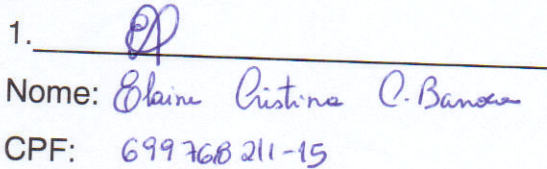 1.
Nome: Elaine Cristina C.
CPF: 699768211-15